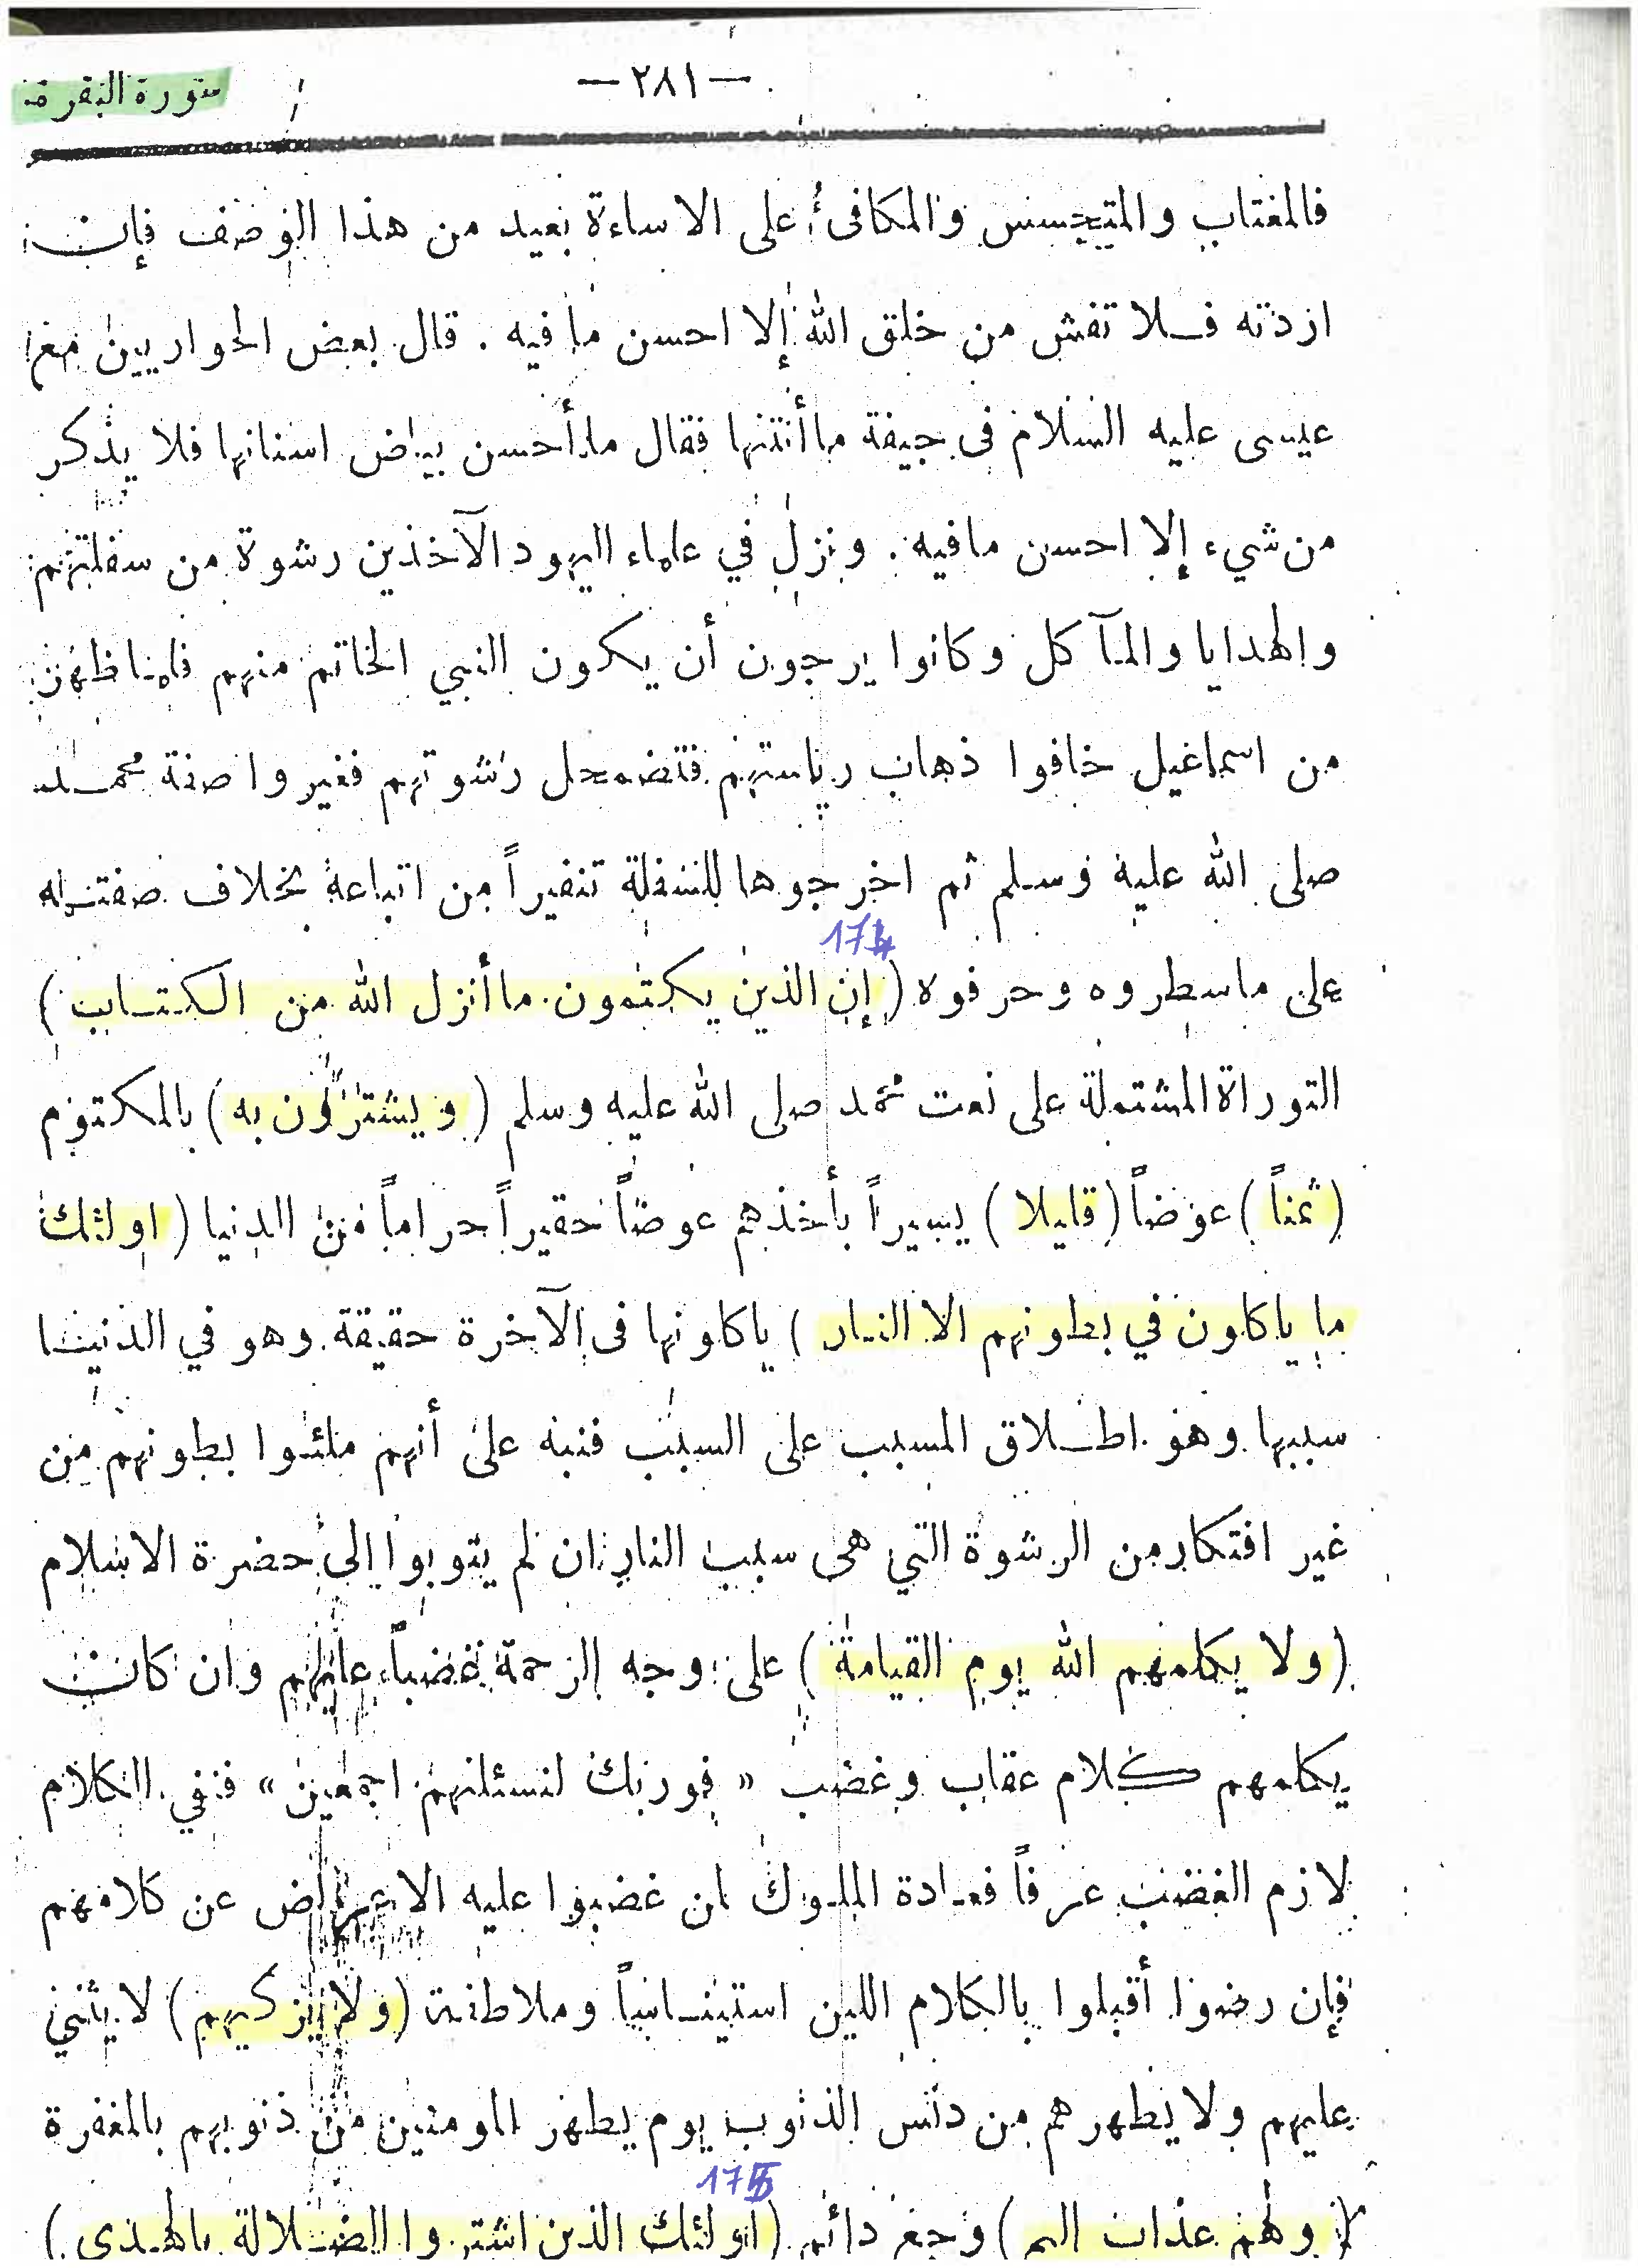 سورة البقرة
— ٢٨١ —
فالمغتاب والمتجسس والمكافئ على الاساءة بعيد من هذا الوصف فإن
اردته فلا تفش من خلق الله إلا احسن ما فيه . قال بعض الحواريين مع
عيسى عليه السلام في جيفة ما أنتنها فقال ما أحسن بياض اسنانها فلا يذكر
من شيء إلا احسن مافيه . ونزل في علماء اليهود الآخذين رشوة من سفلتهم
والهدايا والمآكل وكانوا يرجون أن يكون النبي الخاتم منهم فلما ظهر
من اسماعيل خافوا ذهاب رياستهم فتضمحل رشوتهم فغيروا صفة محمد
صلى الله عليه وسلم ثم اخرجوها للسفلة تنفيراً من اتباعه بخلاف صفته
174
على ماسطروه وحرفوه ( إن الذين يكتمون ما أنزل الله من الكتاب )
التوراة المشتملة على نعت محمد صلى الله عليه وسلم ( ويشترون به ) بالمكتوم
( ثمناً ) عوضاً ( قليلا ) يسيراً بأخذهم عوضاً حقيراً حراماً من الدنيا ( اولئك
ما ياكلون في بطونهم الا النار ) ياكلونها فى الآخرة حقيقة وهو في الدنيا
سببها وهو اطلاق المسبب على السبب فنبه على أنهم ملئوا بطونهم من
غير افتكار من الرشوة التي هى سبب النار ان لم يتوبوا الى حضرة الاسلام
( ولا يكلمهم الله يوم القيامة ) على وجه الرحمة غضباً عليهم وان كانت
يكلمهم كلام عقاب وغضب « فوربك لنسئلنهم اجمعين » فنفي الكلام
لازم الغضب عرفاً فعادة الملوك ان غضبوا عليه الاعراض عن كلامهم
فإن رضوا أقبلوا بالكلام اللين استيناساً وملاطفة ( ولا يزكيهم ) لا يثني
عليهم ولا يطهرهم من دنس الذنوب يوم يطهر المومنين من ذنوبهم بالمغفرة
175
( ولهم عذاب اليم ) وجع دائم ( اولئك الذين اشتروا الضلالة بالهدى )